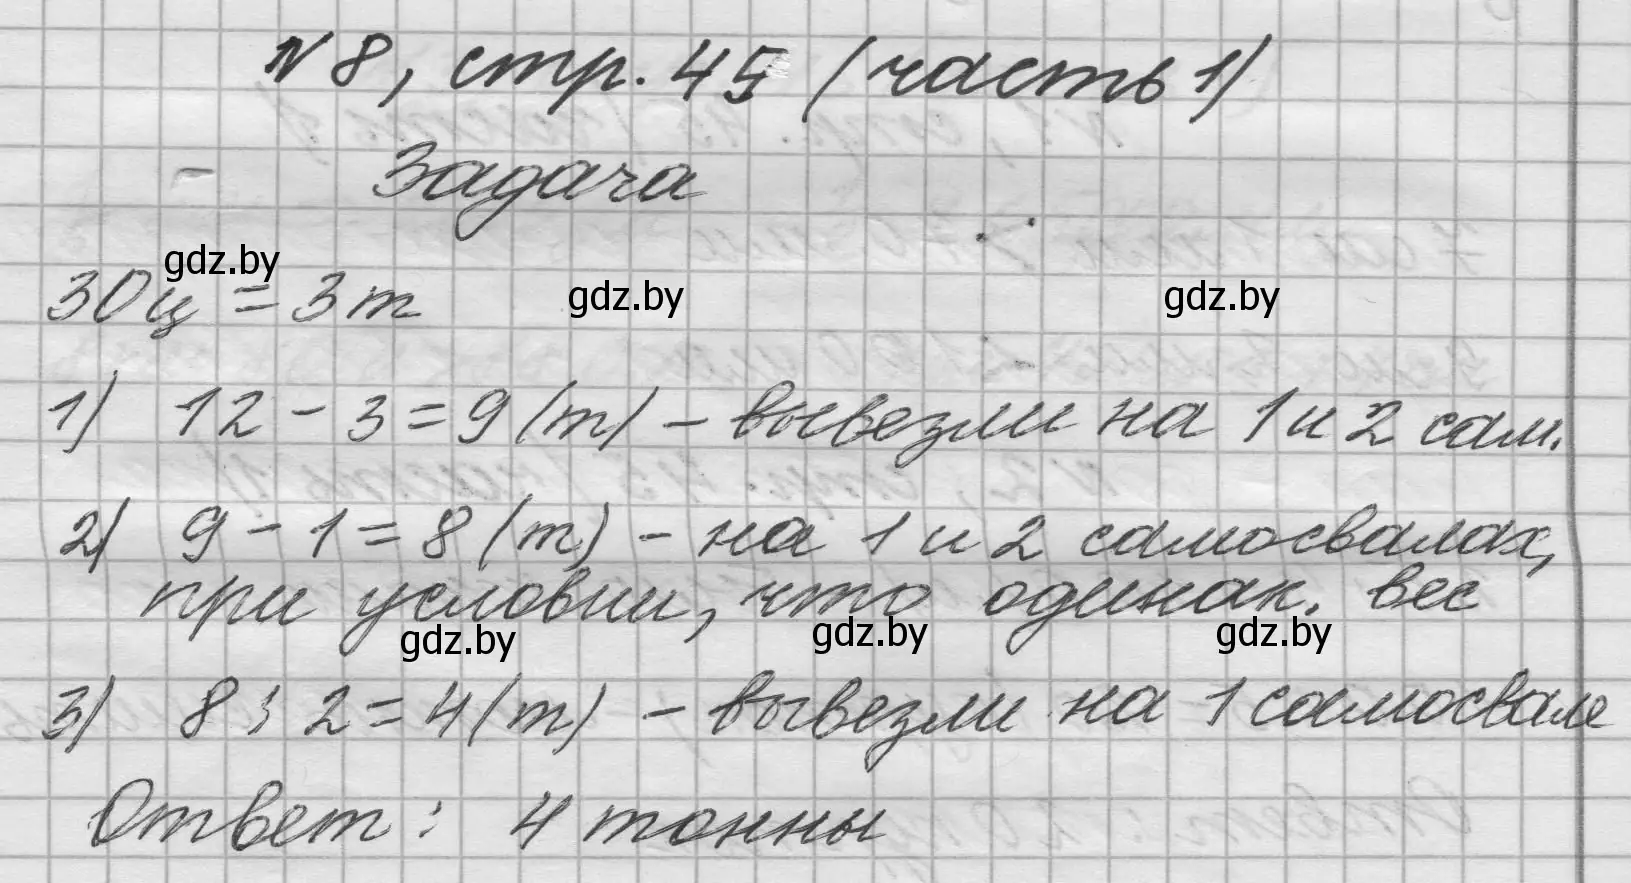 № 8, стр. 45 (часть 1)
Задача
gdz.by
30 ц = 3 т
gdz.by
gdz.by
1) 12 - 3 = 9 (т) - вывезли на 1 и 2 сам.
2) 9 - 1 = 8 (т) - на 1 и 2 самосвалах,
при условии, что одинак. вес
gdz.by
gdz.by
gdz.by
3) 8 : 2 = 4 (т) - вывезли на 1 самосвале
Ответ: 4 тонны